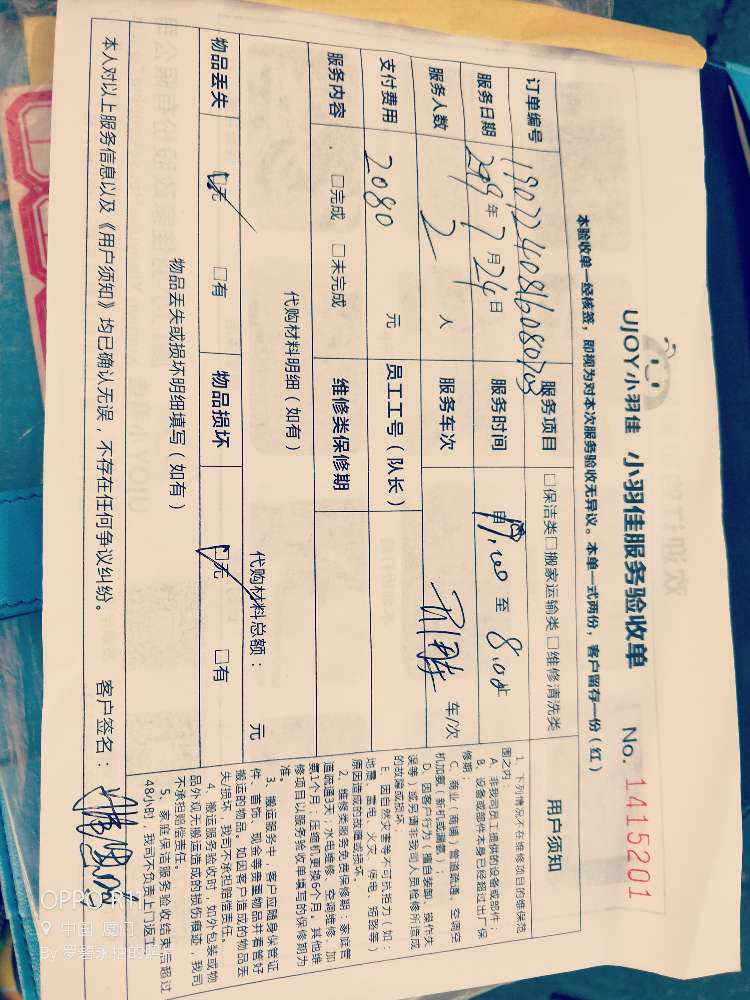 UJOY小羽佳 小羽佳服务验收单 No. 1415201
本验收单一经核签，即视为对本次服务验收无异议。本单一式两份，客户留存一份（红）
订单编号 1907240816080703 服务项目 □保洁类□搬家运输类□维修清洗类
服务日期 2019年7月24日 服务时间 至 8:00
服务人数 2 人 服务车次 车/次
支付费用 2080 元 员工工号（队长）
服务内容 □完成 □未完成 维修类保修期
代购材料明细（如有） 代购材料总额： 元
物品丢失 □无 □有 物品损坏 □无 □有
物品丢失或损坏明细填写（如有）
用户须知
1、下列情况不在维修项目的维保范
围之内：
A、非我司员工提供的设备或部件；
B、设备或部件本身已经超过出厂保
修期；
C、商业（商铺）管道疏通、空调空
机加氨（新机或漏氨）；
D、因客户行为（擅自装卸、操作失
误等）或另请非我司人员检修所造成
的故障或损坏；
E、因自然灾害等不可抗拒力（如：
地震、雷电、火灾、停电、短路等）
原因造成的故障或损坏。
2、维修类服务免费保修期：家庭管
道疏通3天，水电维修、空调维修、加
氨1个月；压缩机更换6个月。其他维
修项目以服务验收单填写的保修期为
准。
3、搬运服务中，客户应随身保管证
件、首饰、现金等贵重物品并看管好
搬运的物品。如因客户造成的物品丢
失/损坏，我司不承担赔偿责任。
4、搬运服务验收时，如外包装或物
品外观无搬运造成的损伤痕迹，我司
不承担赔偿责任。
5、家庭保洁服务验收结束后超过
48小时，我司不负责上门返工
本人对以上服务信息以及《用户须知》均已确认无误，不存在任何争议纠纷。 客户签名：
OPPO R11
中国·厦门